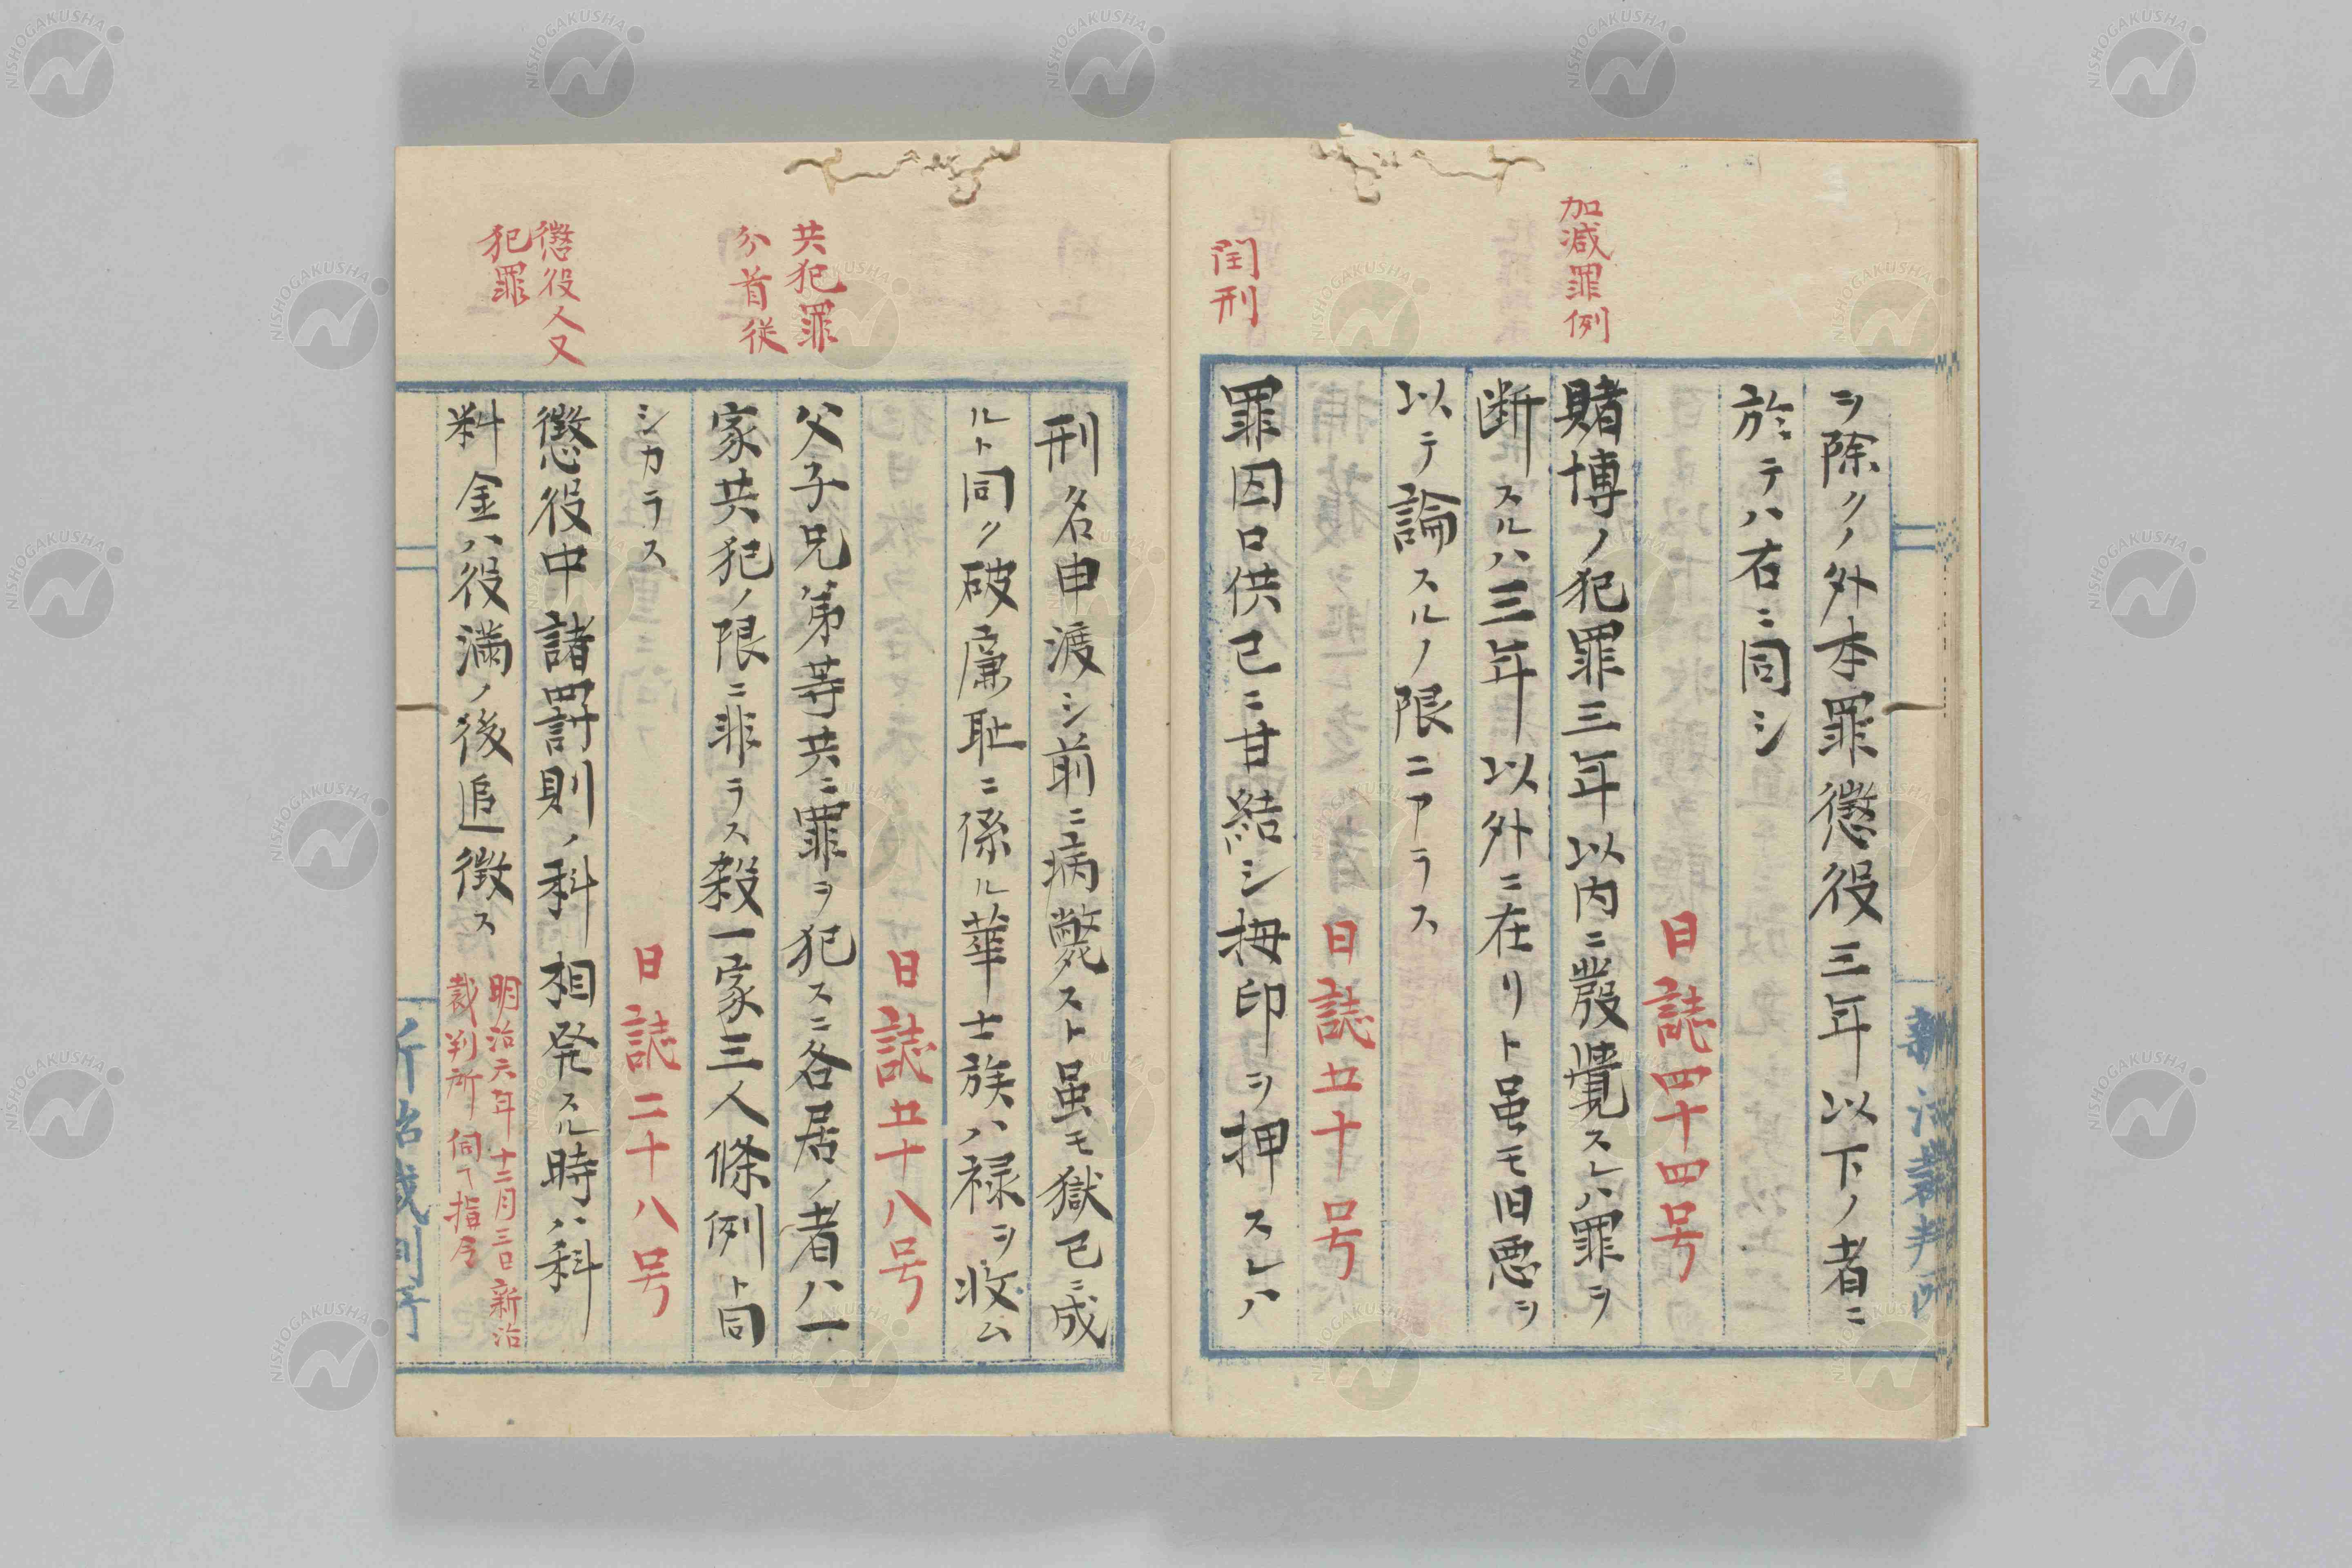 ヲ除クノ外本罪懲役三年以下ノ者ニ
於テハ右ニ同シ
日誌四十四号
加減罪例
賭博ノ犯罪三年以内ニ發覺スレハ罪ヲ
断スルハ三年以外ニ在リト虽モ旧悪ヲ
以テ論スルノ限ニアラス
日誌五十号
閏刑
罪因口供已ニ甘結シ拇印ヲ押スレハ
刑名申渡シ前ニ病斃スト虽モ獄已ニ成
ルト同ク破廉恥ニ係ル華士族ハ禄ヲ收ム
日誌五十八号
共犯罪
分首従
父子兄弟等共ニ罪ヲ犯スニ各居ノ者ハ一
家共犯ノ限ニ非ラス殺一家三人條例ト同
シカラス
日誌二十八号
懲役人又
犯罪
懲役中諸罰則ノ科相発スル時ハ科
料金ハ役満ノ後追徴ス
明治六年十二月三日新治
裁判所伺ヘ指令
新治裁判所
新治裁判所
NISHOGAKUSHA